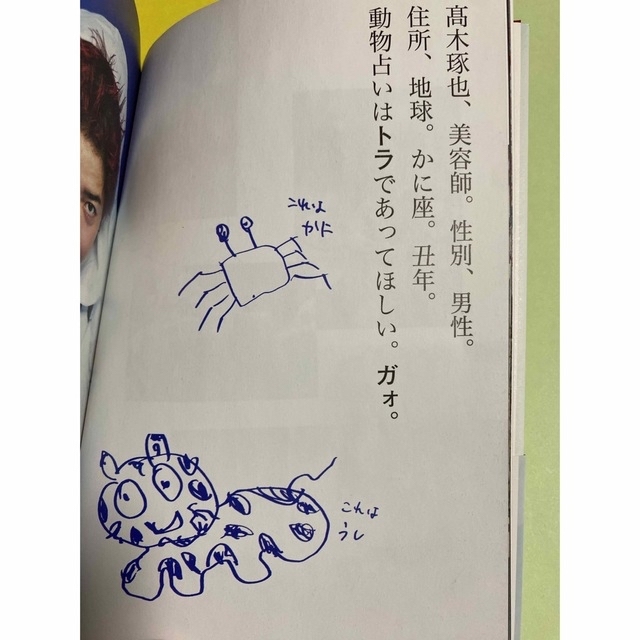 髙木琢也、美容師。性別、男性。
住所、地球。かに座。丑年。
動物占いはトラであってほしい。ガォ。
これは
かに
これは
うし